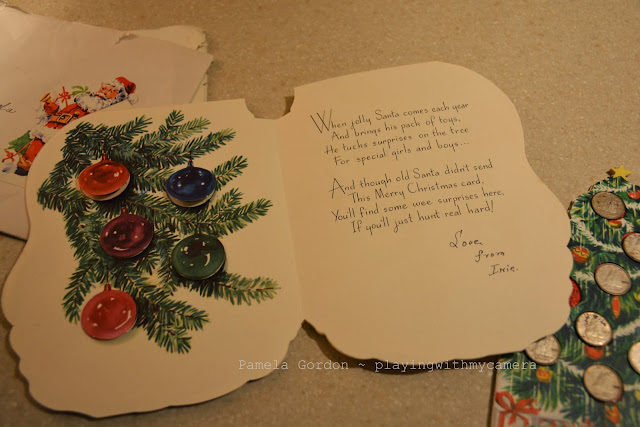 When jolly Santa comes each year
And brings his pack of toys,
He tucks surprises on the tree
For special girls and boys...
And though old Santa didn't send
This Merry Christmas card,
You'll find some wee surprises here,
If you'll just hunt real hard!
Love,
from
Irie.
Pamela Gordon ~ playingwithmycamera